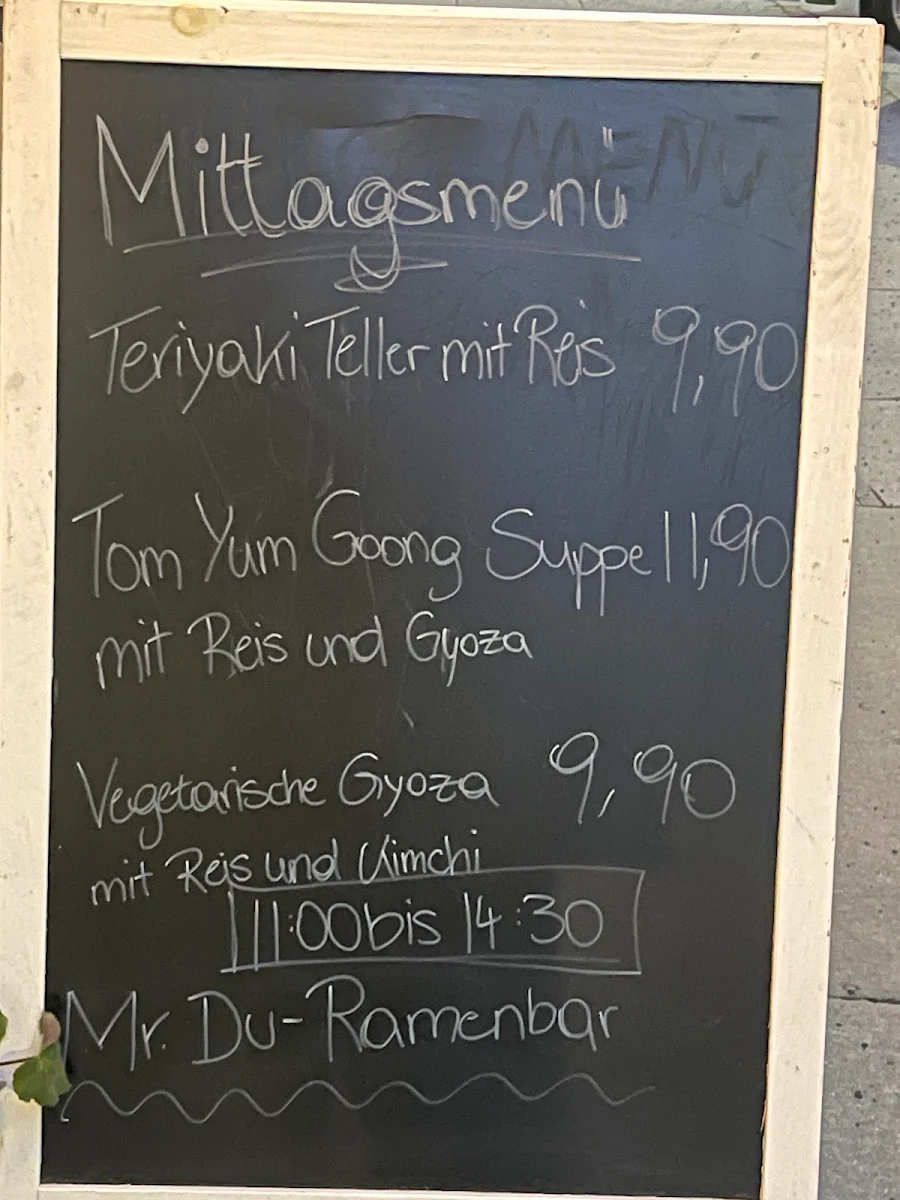 Mittagsmenü
MENÜ
Teriyaki Teller mit Reis 9,90
Tom Yum Goong Suppe 11,90
mit Reis und Gyoza
Vegetarische Gyoza 9,90
mit Reis und Kimchi
11:00 bis 14:30
Mr. Du-Ramenbar